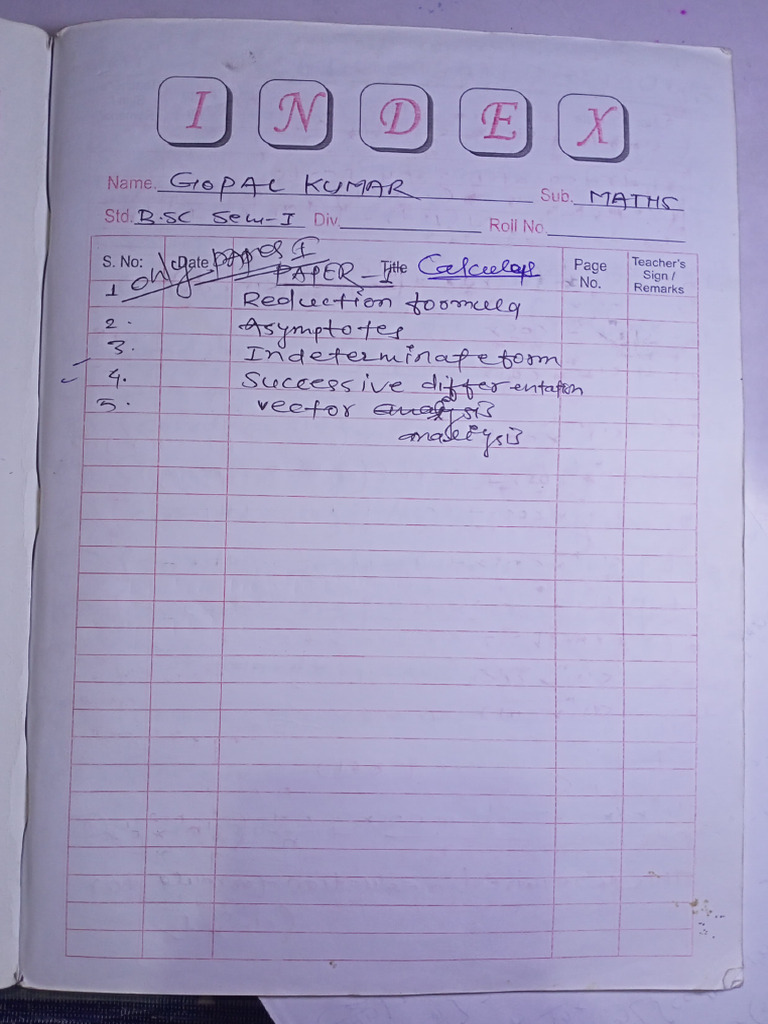 INDEX
Name. GOPAL KUMAR Sub. MATHS
Std. B.SC Sem-I Div Roll No.
only paper I
S. No: Date PAPER-I Title Calculus Page No. Teacher's Sign / Remarks
1 Reduction formula
2. Asymptotes
3. Indeterminate form
4. Successive differentation
5. vector analysis
analysis